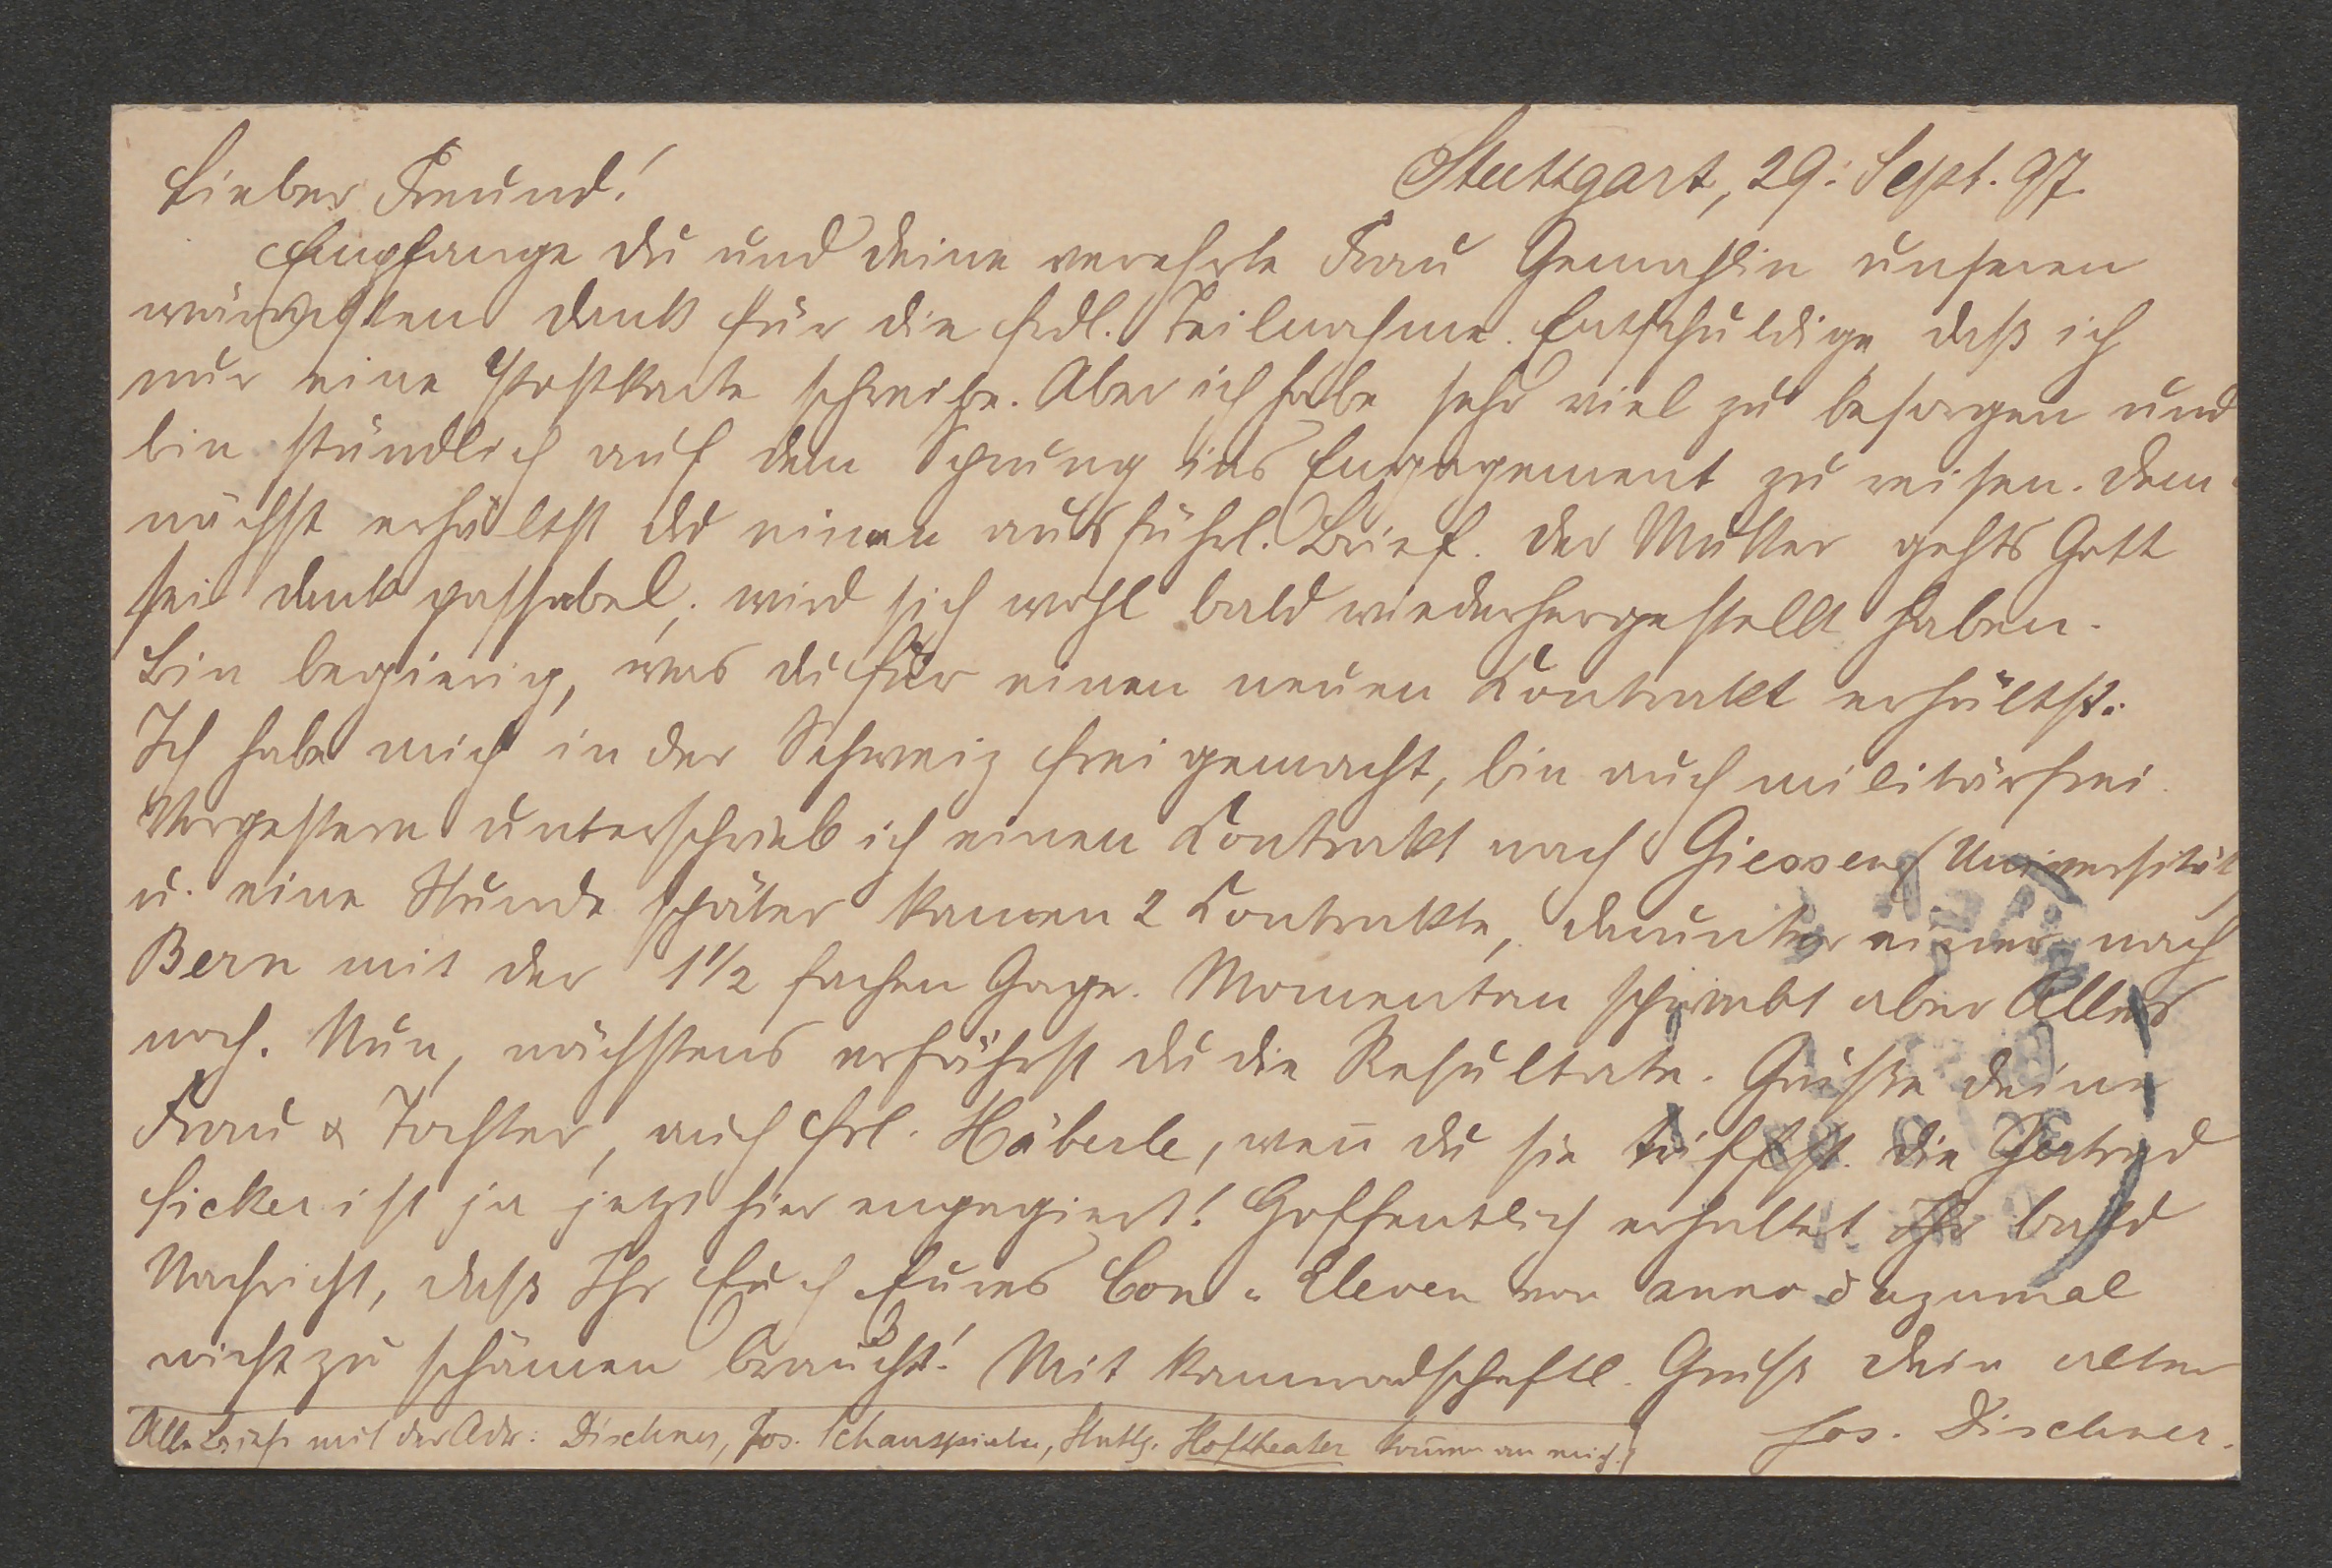 Stuttgart, 29. Sept. 97.
Lieber Freund!
Empfange du und deine verehrte Frau Gemahlin unseren
wärmsten Dank für die frdl. Teilnahme. Entschuldige, daß ich
nur eine Postkarte schreibe. Aber ich habe sehr viel zu besorgen und
bin stündlich auf dem Sprung ins Engagement zu reisen. Dem-
nächst erhältst du einen ausführl. Brief. Der Mutter gehts Gott
sei Dank passabel; wird sich wohl bald wiederhergestellt haben.
Bin begierig, was du für einen neuen Contrakt erhältst.
Ich habe mich in der Schweiz frei gemacht, bin auch militärfrei.
Vorgestern unterschrieb ich einen Contrakt nach Giessen (Universität)
u. eine Stunde später kamen 2 Contrakte, darunter einer nach
Bern mit der 1 1/2 fachen Gage. Momentan schwebt aber Alles
noch. Nun, nächstens erfährst du die Resultate. Grüße deine
Frau & Tochter, auch Frl. Häberle, wen̄ du sie triffst. Die Gertrud
Ficker ist ja jetzt hier engagiert! Hoffentlich erhaltet Ihr bald
Nachricht, daß Ihr Euch Eures Eleven von anno dazumal
nicht zu schämen braucht! Mit kameradschaftl. Gruß dein alter
Jos. Dischner.
Alle Briefe mit der Adr: Dischner, Jos. Schauspieler, Stuttg. Hoftheater kom̄en an mich!